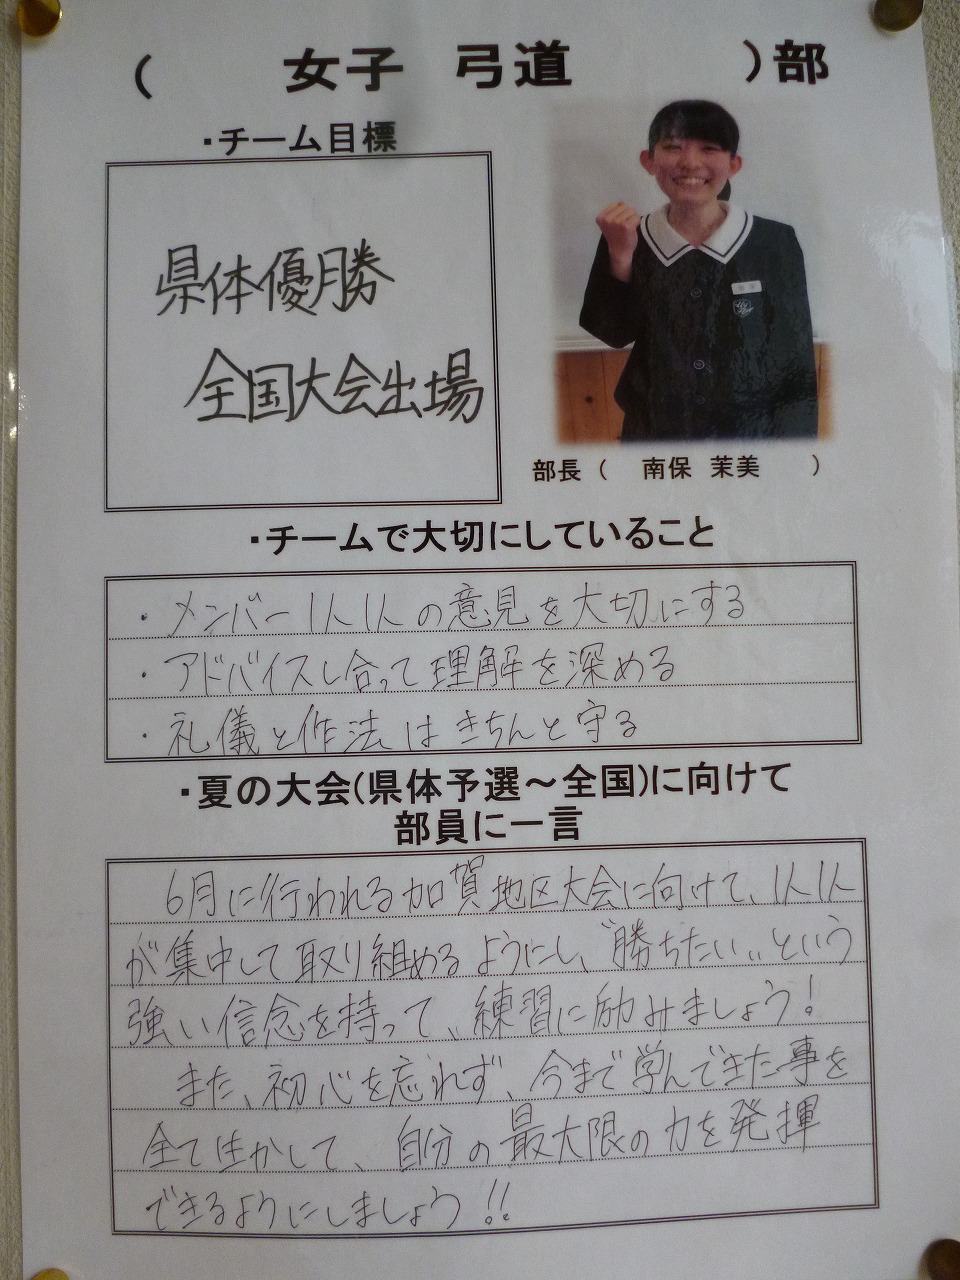 ( 女子 弓道 )部
・チーム目標
県体優勝
全国大会出場
部長 ( 南保 茉美 )
・チームで大切にしていること
・メンバー1人1人の意見を大切にする
・アドバイスし合って理解を深める
・礼儀と作法はきちんと守る
・夏の大会(県体予選～全国)に向けて
部員に一言
6月に行われる加賀地区大会に向けて、1人1人
が集中して取り組めるようにし、〝勝ちたい〟という
強い信念を持って、練習に励みましょう!
また、初心を忘れず、今まで学んできた事を
全て生かして、自分の最大限の力を発揮
できるようにしましょう!!